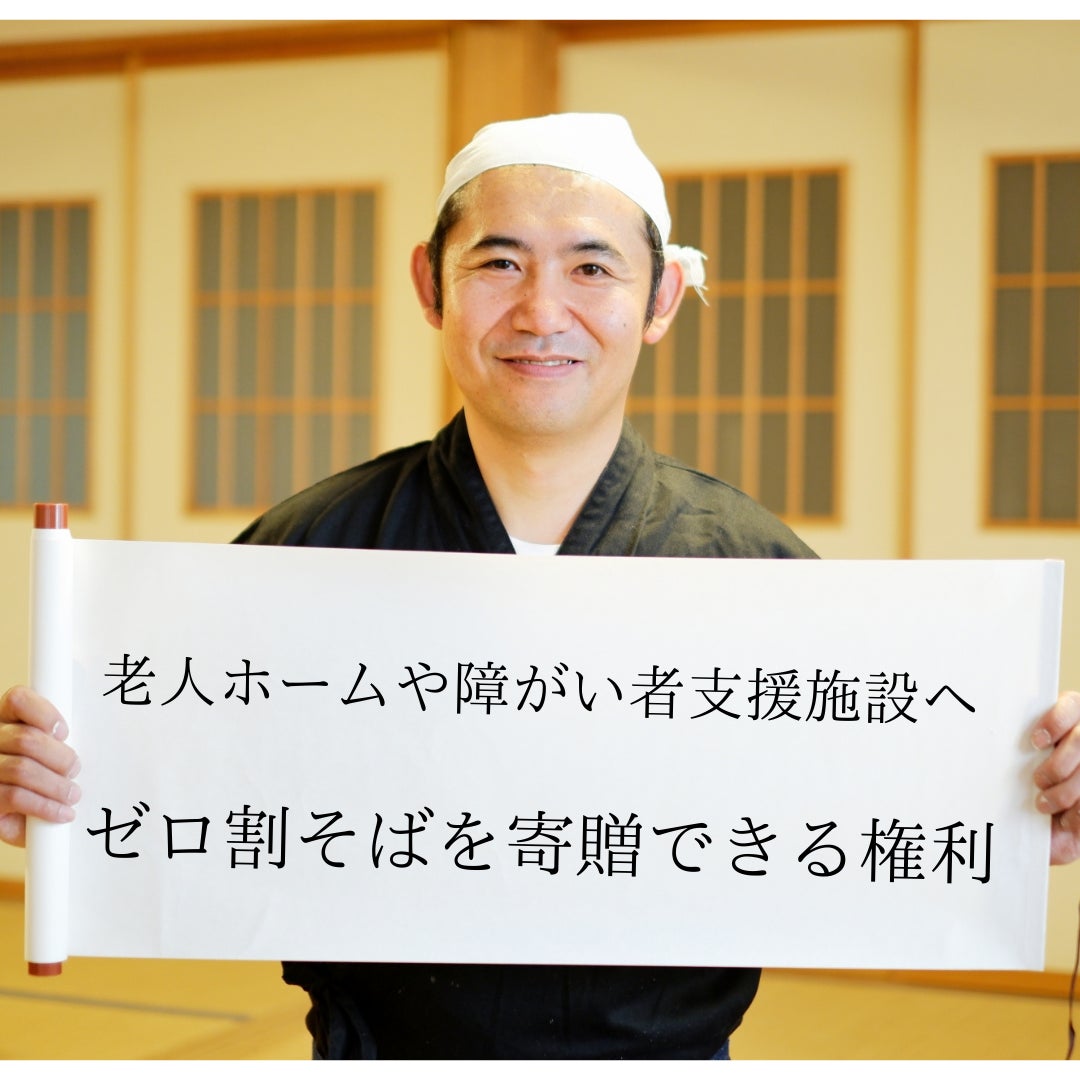 老人ホームや障がい者支援施設へ
ゼロ割そばを寄贈できる権利